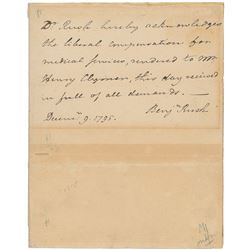 Dr. Rush hereby acknowledges
the liberal compensation for
medical services, rendered to Mr
Henry Clymer, this day received
in full of all demands. —
Benjn Rush
Decemr 9. 1795.